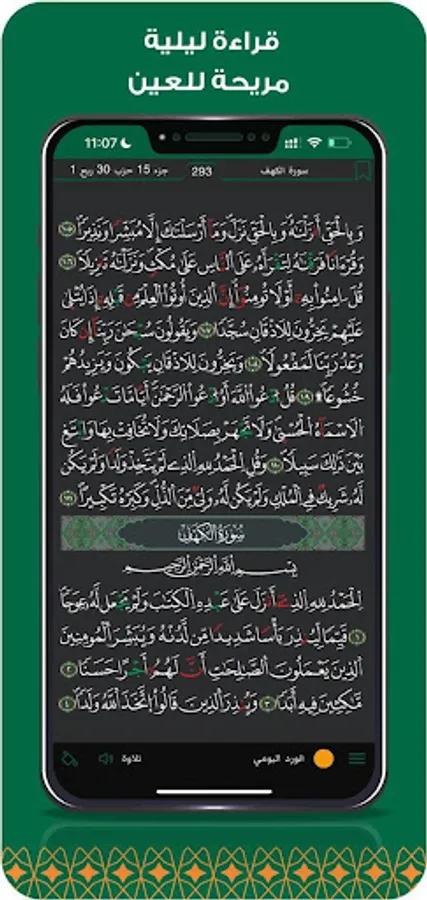 قراءة ليلية
مريحة للعين
11:07
سورة الكهف 293 جزء 15 حزب 30 ربع 1
وَبِالْحَقِّ أَنزَلْنَٰهُ وَبِالْحَقِّ نَزَلَ وَمَا أَرْسَلْنَٰكَ إِلَّا مُبَشِّرًا وَنَذِيرًا ١٠٥
وَقُرْءَانًا فَرَقْنَٰهُ لِتَقْرَأَهُ عَلَى النَّاسِ عَلَىٰ مُكْثٍ وَنَزَّلْنَٰهُ تَنزِيلًا ١٠٦
قُلْ ءَامِنُوا بِهِ أَوْ لَا تُومِنُوا إِنَّ الَّذِينَ أُوتُوا الْعِلْمَ مِن قَبْلِهِ إِذَا يُتْلَىٰ
عَلَيْهِمْ يَخِرُّونَ لِلْأَذْقَانِ سُجَّدًا ١٠٧ وَيَقُولُونَ سُبْحَٰنَ رَبِّنَا إِن كَانَ
وَعْدُ رَبِّنَا لَمَفْعُولًا ١٠٨ وَيَخِرُّونَ لِلْأَذْقَانِ يَبْكُونَ وَيَزِيدُهُمْ
خُشُوعًا ١٠٩ قُلُ ادْعُوا اللَّهَ أَوُ ادْعُوا الرَّحْمَٰنَ أَيًّا مَّا تَدْعُوا فَلَهُ
الْأَسْمَاءُ الْحُسْنَىٰ وَلَا تَجْهَرْ بِصَلَاتِكَ وَلَا تُخَافِتْ بِهَا وَابْتَغِ
بَيْنَ ذَٰلِكَ سَبِيلًا ١١٠ وَقُلِ الْحَمْدُ لِلَّهِ الَّذِي لَمْ يَتَّخِذْ وَلَدًا وَلَمْ يَكُن
لَّهُ شَرِيكٌ فِي الْمُلْكِ وَلَمْ يَكُن لَّهُ وَلِيٌّ مِّنَ الذُّلِّ وَكَبِّرْهُ تَكْبِيرًا ١١١
سُورَةُ الْكَهْفِ
بِسْمِ اللَّهِ الرَّحْمَٰنِ الرَّحِيمِ
الْحَمْدُ لِلَّهِ الَّذِي أَنزَلَ عَلَىٰ عَبْدِهِ الْكِتَٰبَ وَلَمْ يَجْعَل لَّهُ عِوَجًا
١ قَيِّمًا لِّيُنذِرَ بَأْسًا شَدِيدًا مِّن لَّدُنْهُ وَيُبَشِّرَ الْمُومِنِينَ
الَّذِينَ يَعْمَلُونَ الصَّٰلِحَٰتِ أَنَّ لَهُمْ أَجْرًا حَسَنًا ٢
مَّٰكِثِينَ فِيهِ أَبَدًا ٣ وَيُنذِرَ الَّذِينَ قَالُوا اتَّخَذَ اللَّهُ وَلَدًا ٤
الورد اليومي تلاوة